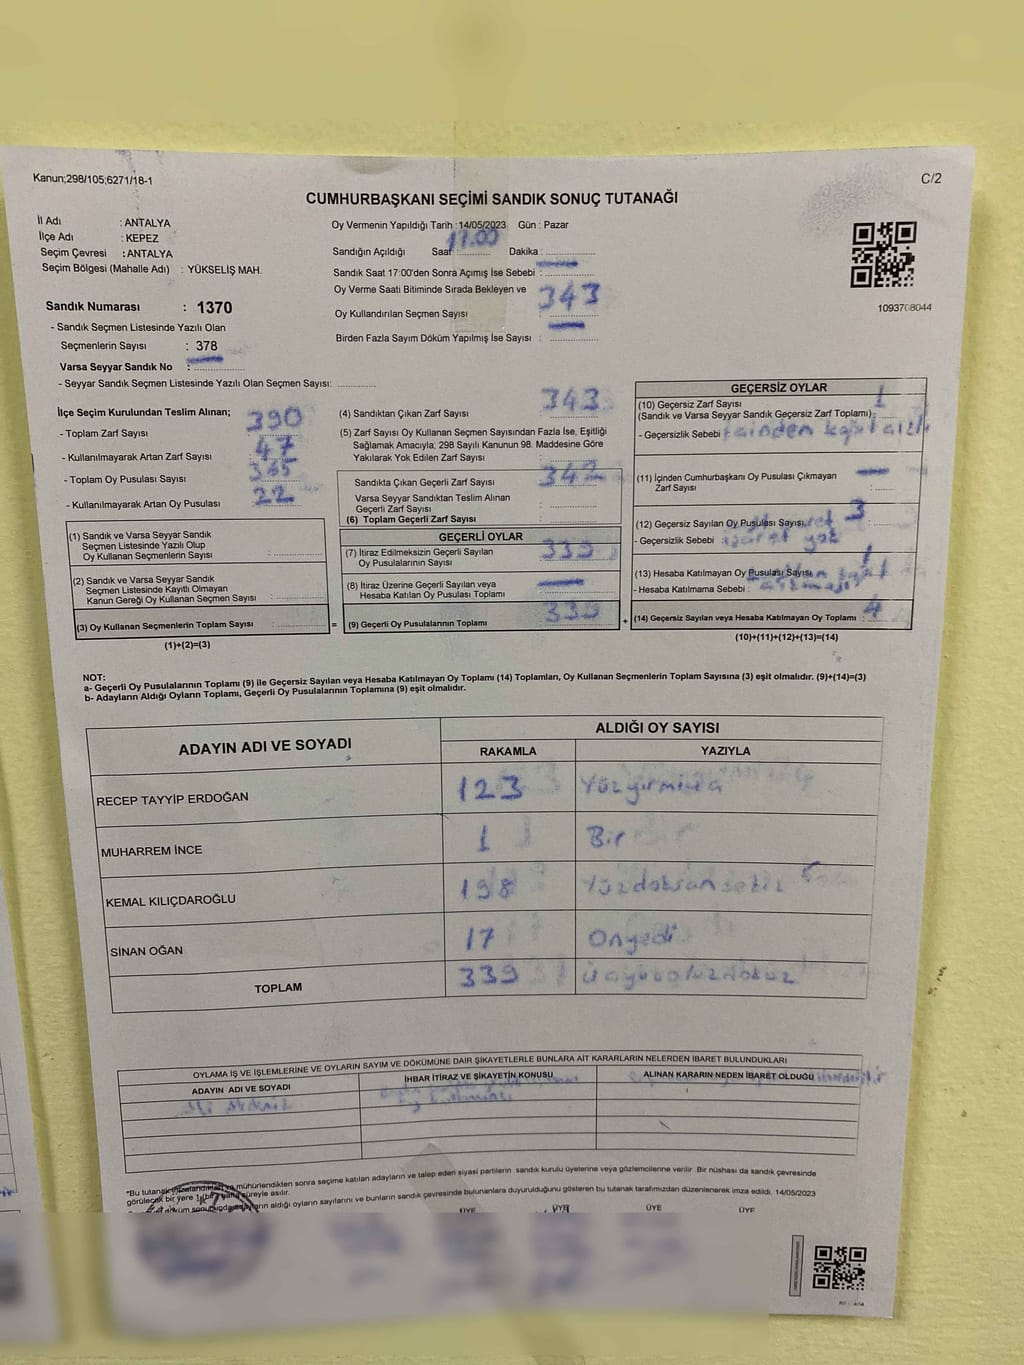 Kanun;298/105;6271/18-1
C/2
CUMHURBAŞKANI SEÇİMİ SANDIK SONUÇ TUTANAĞI
İl Adı : ANTALYA
İlçe Adı : KEPEZ
Seçim Çevresi : ANTALYA
Seçim Bölgesi (Mahalle Adı) : YÜKSELİŞ MAH.
Oy Vermenin Yapıldığı Tarih : 14/05/2023 Gün : Pazar
Sandığın Açıldığı Saat : 17.00 Dakika :
Sandık Saat 17:00'den Sonra Açımış İse Sebebi :
Oy Verme Saati Bitiminde Sırada Bekleyen ve
Oy Kullandırılan Seçmen Sayısı 343
Birden Fazla Sayım Döküm Yapılmış İse Sayısı :
1093708044
Sandık Numarası : 1370
- Sandık Seçmen Listesinde Yazılı Olan
Seçmenlerin Sayısı : 378
Varsa Seyyar Sandık No :
- Seyyar Sandık Seçmen Listesinde Yazılı Olan Seçmen Sayısı:
İlçe Seçim Kurulundan Teslim Alınan;
- Toplam Zarf Sayısı 390
- Kullanılmayarak Artan Zarf Sayısı 47
- Toplam Oy Pusulası Sayısı 365
- Kullanılmayarak Artan Oy Pusulası 22
(1) Sandık ve Varsa Seyyar Sandık
Seçmen Listesinde Yazılı Olup
Oy Kullanan Seçmenlerin Sayısı :
(2) Sandık ve Varsa Seyyar Sandık
Seçmen Listesinde Kayıtlı Olmayan
Kanun Gereği Oy Kullanan Seçmen Sayısı :
(3) Oy Kullanan Seçmenlerin Toplam Sayısı :
(1)+(2)=(3)
(4) Sandıktan Çıkan Zarf Sayısı 343
(5) Zarf Sayısı Oy Kullanan Seçmen Sayısından Fazla İse, Eşitliği
Sağlamak Amacıyla; 298 Sayılı Kanunun 98. Maddesine Göre
Yakılarak Yok Edilen Zarf Sayısı :
Sandıkta Çıkan Geçerli Zarf Sayısı 342
Varsa Seyyar Sandıktan Teslim Alınan
Geçerli Zarf Sayısı
(6) Toplam Geçerli Zarf Sayısı
GEÇERLİ OYLAR
(7) İtiraz Edilmeksizin Geçerli Sayılan
Oy Pusulalarının Sayısı 339
(8) İtiraz Üzerine Geçerli Sayılan veya
Hesaba Katılan Oy Pusulası Toplamı
= (9) Geçerli Oy Pusulalarının Toplamı 339 +
GEÇERSİZ OYLAR
(10) Geçersiz Zarf Sayısı 1
(Sandık ve Varsa Seyyar Sandık Geçersiz Zarf Toplamı)
- Geçersizlik Sebebi
(11) İçinden Cumhurbaşkanı Oy Pusulası Çıkmayan
Zarf Sayısı :
(12) Geçersiz Sayılan Oy Pusulası Sayısı 3
- Geçersizlik Sebebi : işaret yok
(13) Hesaba Katılmayan Oy Pusulası Sayısı 1
- Hesaba Katılmama Sebebi :
(14) Geçersiz Sayılan veya Hesaba Katılmayan Oy Toplamı : 4
(10)+(11)+(12)+(13)=(14)
NOT:
a- Geçerli Oy Pusulalarının Toplamı (9) ile Geçersiz Sayılan veya Hesaba Katılmayan Oy Toplamı (14) Toplamları, Oy Kullanan Seçmenlerin Toplam Sayısına (3) eşit olmalıdır. (9)+(14)=(3)
b- Adayların Aldığı Oyların Toplamı, Geçerli Oy Pusulalarının Toplamına (9) eşit olmalıdır.
ADAYIN ADI VE SOYADI
ALDIĞI OY SAYISI
RAKAMLA YAZIYLA
RECEP TAYYİP ERDOĞAN 123
MUHARREM İNCE 1 Bir
KEMAL KILIÇDAROĞLU 198 Yüzdoksansekiz
SİNAN OĞAN 17 Onyedi
TOPLAM 339
OYLAMA İŞ VE İŞLEMLERİNE VE OYLARIN SAYIM VE DÖKÜMÜNE DAİR ŞİKAYETLERLE BUNLARA AİT KARARLARIN NELERDEN İBARET BULUNDUKLARI
ADAYIN ADI VE SOYADI İHBAR İTİRAZ VE ŞİKAYETİN KONUSU ALINAN KARARIN NEDEN İBARET OLDUĞU
*Bu tutanak mühürlendikten sonra seçime katılan adayların ve talep eden siyasi partilerin sandık kurulu üyelerine veya gözlemcilerine verilir. Bir nüshası da sandık çevresinde
görülecek bir yere süreyle asılır.
aldığı oyların sayılarını ve bunların sandık çevresinde bulunanlara duyurulduğunu gösteren bu tutanak tarafımızdan düzenlenerek imza edildi. 14/05/2023
ÜYE ÜYE ÜYE ÜYE